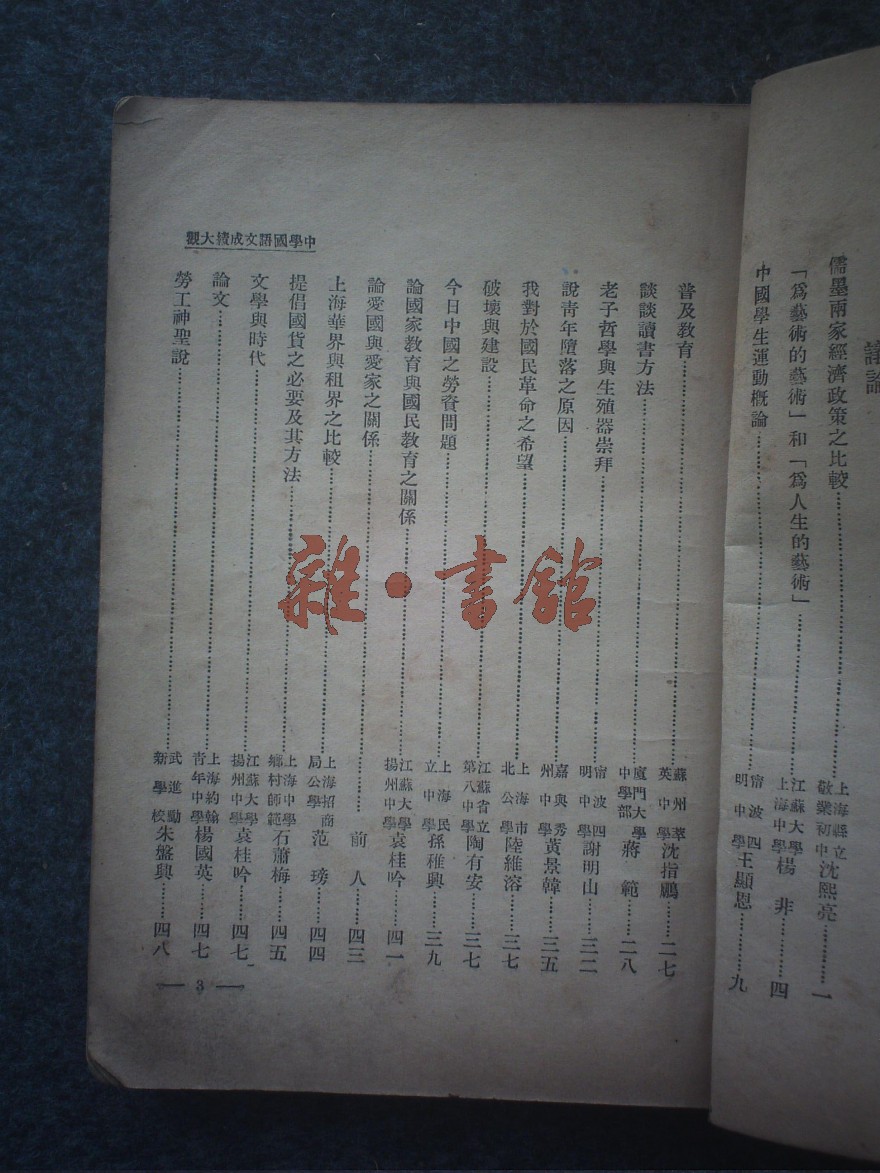 議論
儒墨兩家經濟政策之比較……上海縣立敬業初中 沈熙亮……一
「爲藝術的藝術」和「爲人生的藝術」……江蘇大學上海中學 楊非……四
中國學生運動概論……甯波四明中學 王顯恩……九
普及教育……蘇州萃英中學 沈指鵬……二七
談談讀書方法……廈門大學中學部 蔣範……二八
老子哲學與生殖器崇拜……甯波四明中學 謝明山……三二
說靑年墮落之原因……嘉興秀州中學 黃景韓……三五
我對於國民革命之希望……上海市北公學 陸維溶……三七
破壞與建設……江蘇省立第八中學 陶有安……三七
今日中國之勞資問題……上海民立中學 孫稚興……三九
論國家教育與國民教育之關係……江蘇大學揚州中學 袁桂吟……四一
論愛國與愛家之關係……前人……四三
上海華界與租界之比較……上海招商局公學 范塝……四四
提倡國貨之必要及其方法……上海中學鄉村師範 石蕭梅……四五
文學與時代……江蘇大學揚州中學 袁桂吟……四七
論文……上海約翰青年中學 楊國英……四七
勞工神聖說……武進勵新學校 朱盤興……四八
中學國語文成績大觀
3
雜·書館